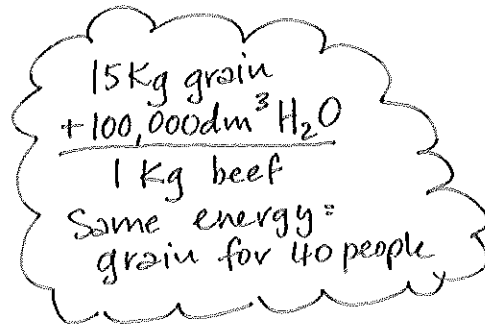 15Kg grain
+100,000dm³ H₂O
1 Kg beef
Same energy:
grain for 40 people